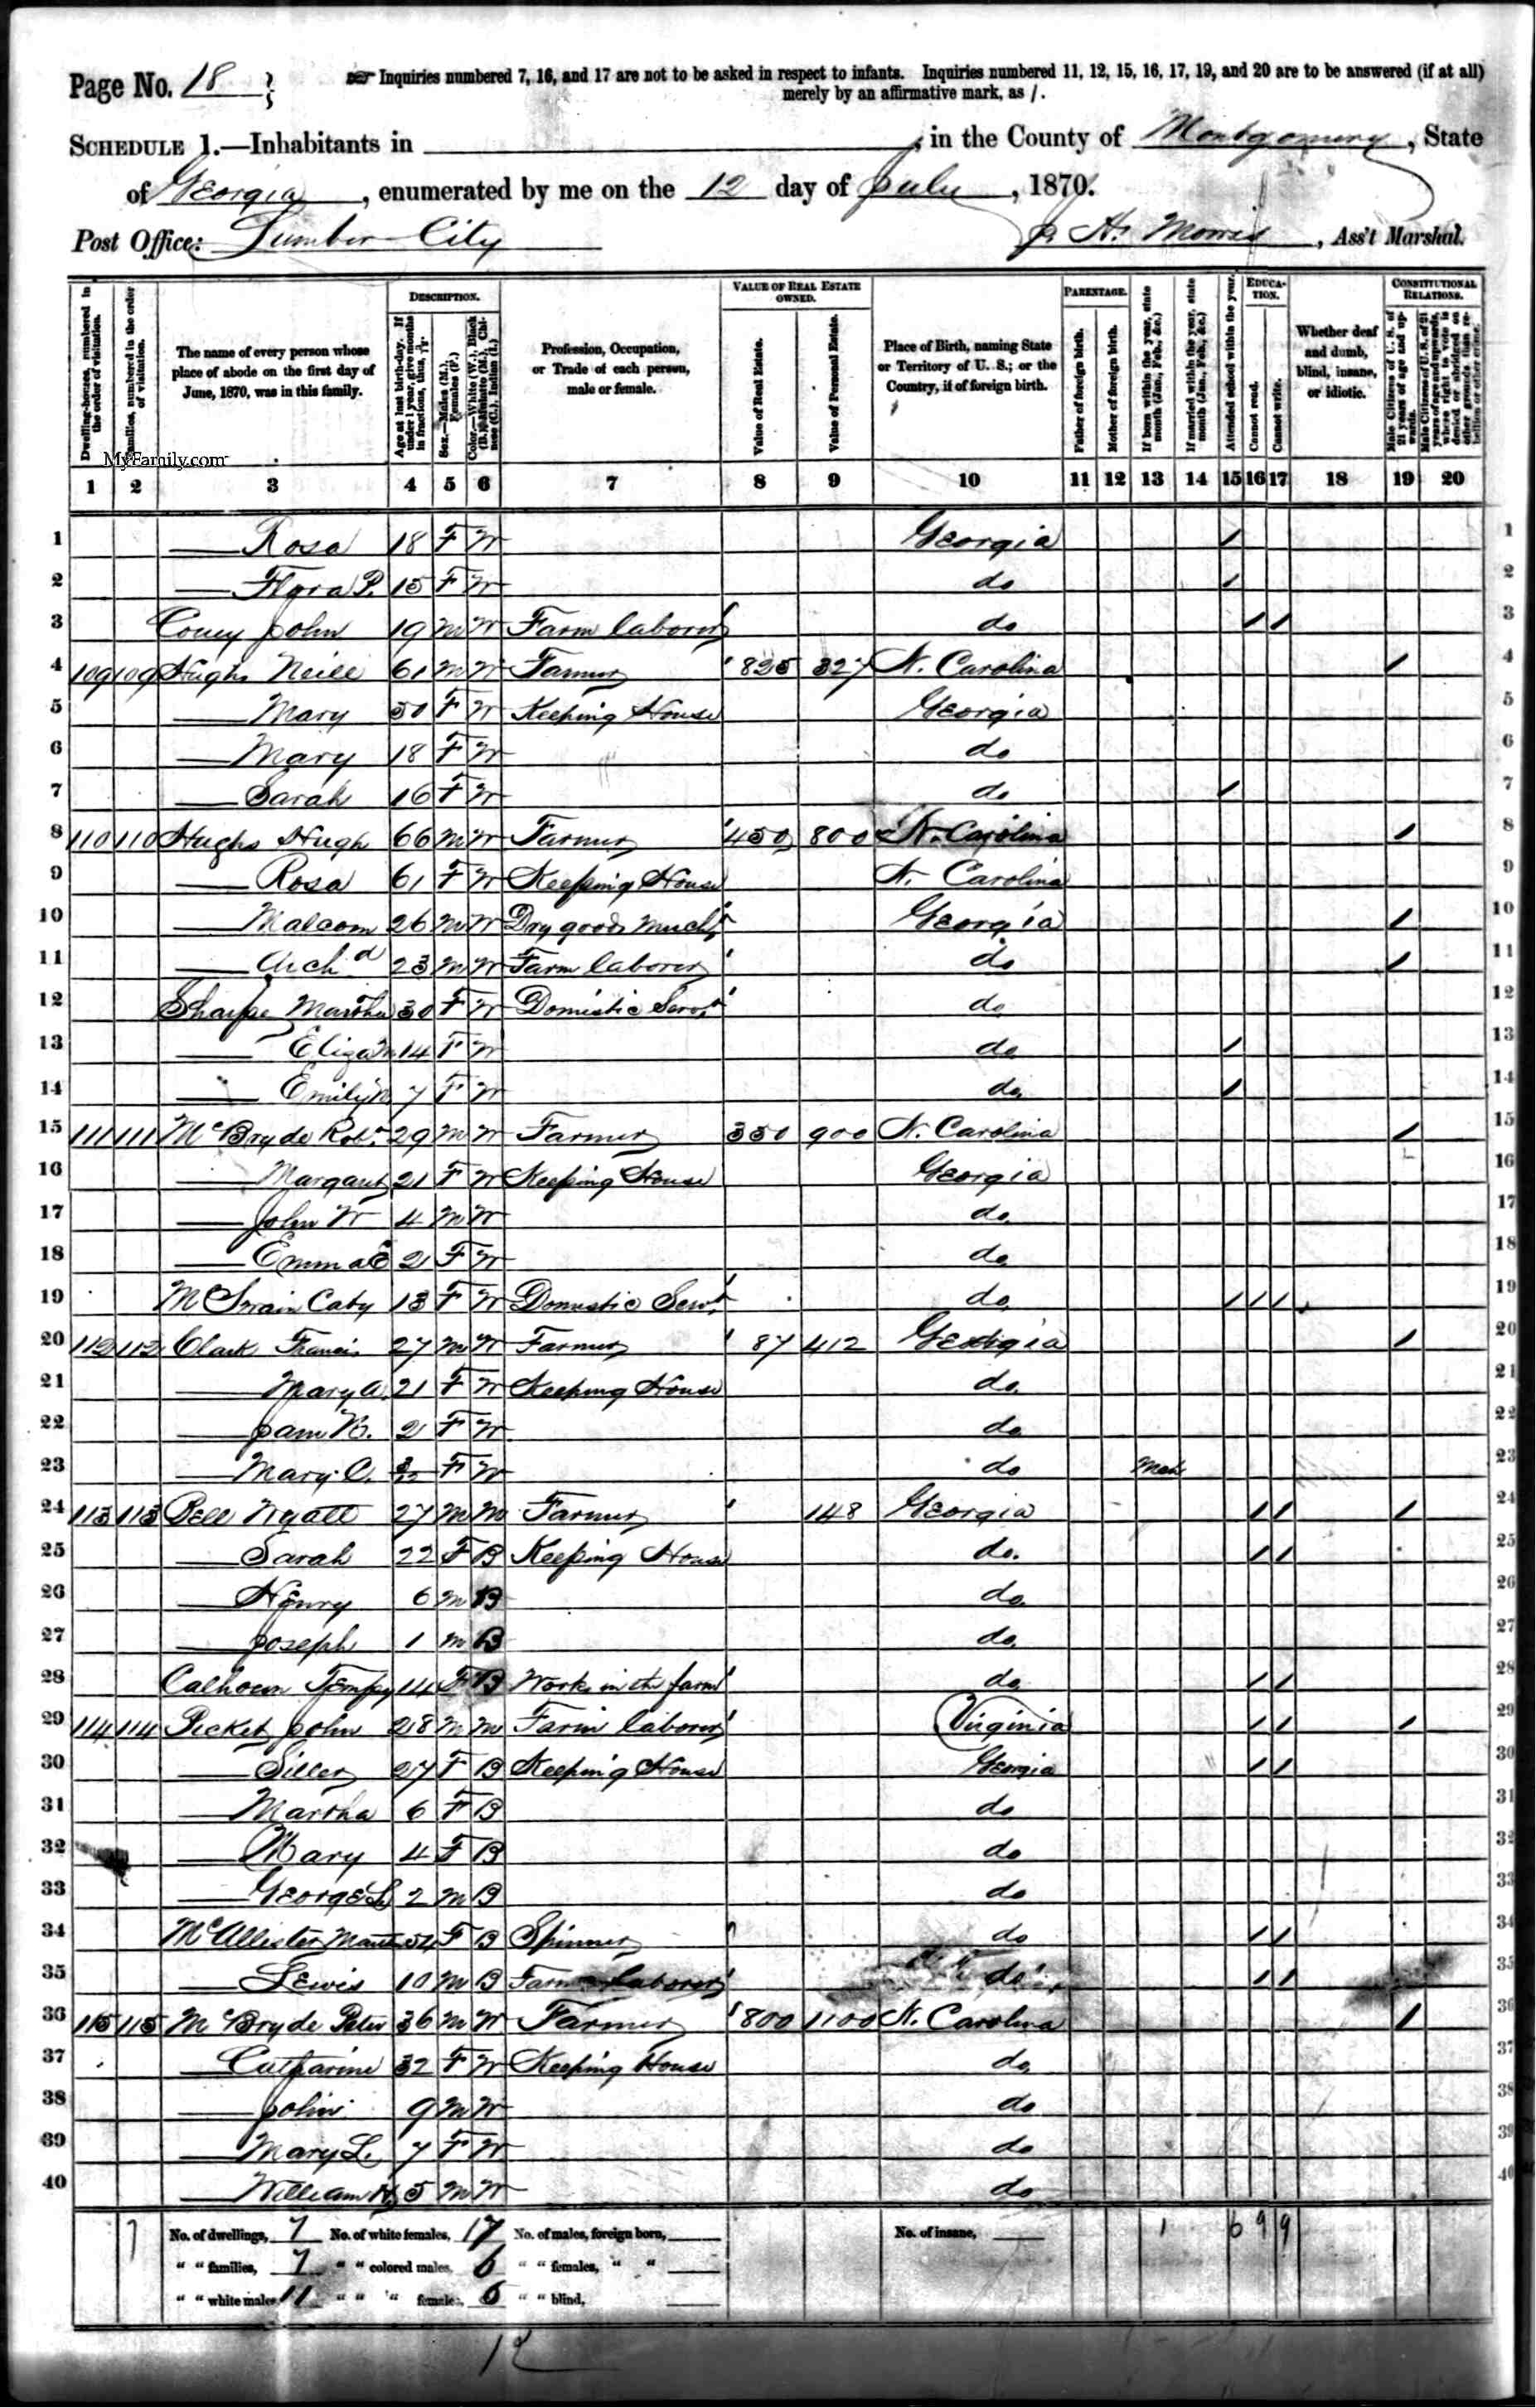 Page No. 18
Inquiries numbered 7, 16, and 17 are not to be asked in respect to infants. Inquiries numbered 11, 12, 15, 16, 17, 19, and 20 are to be answered (if at all)
merely by an affirmative mark, as /.
SCHEDULE 1.—Inhabitants in , in the County of Montgomery, State
of Georgia, enumerated by me on the 12 day of July, 1870.
Post Office: Lumber City
H. Morris, Ass't Marshal.
Dwelling-houses, numbered in the order of visitation.
Families, numbered in the order of visitation.
The name of every person whose place of abode on the first day of June, 1870, was in this family.
DESCRIPTION.
Age at last birth-day. If under 1 year, give months in fractions, thus,
Sex.—Males (M.), Females (F.)
Color.—White (W.), Black (B.), Mulatto (M.), Chinese (C.), Indian (I.)
Profession, Occupation, or Trade of each person, male or female.
VALUE OF REAL ESTATE OWNED.
Value of Real Estate.
Value of Personal Estate.
Place of Birth, naming State or Territory of U. S.; or the Country, if of foreign birth.
PARENTAGE.
Father of foreign birth.
Mother of foreign birth.
If born within the year, state month (Jan., Feb., &c.)
If married within the year, state month (Jan., Feb., &c.)
Attended school within the year.
EDUCATION.
Cannot read.
Cannot write.
Whether deaf and dumb, blind, insane, or idiotic.
CONSTITUTIONAL RELATIONS.
Male Citizens of U. S. of 21 years of age and upwards.
Male Citizens of U. S. of 21 years of age and upwards, where right to vote is denied or abridged on other grounds than rebellion or other crime.
MyFamily.com
1 2 3 4 5 6 7 8 9 10 11 12 13 14 15 16 17 18 19 20
1 — Rosa 18 F W Georgia / 1
2 — Flora P. 15 F W do / 2
3 John 19 M W Farm laborer do / / 3
4 109 109 Hughs Neill 61 M W Farmer 825 327 N. Carolina / 4
5 — Mary 50 F W Keeping House Georgia 5
6 — Mary 18 F W do 6
7 — Sarah 16 F W do / 7
8 110 110 Hughs Hugh 66 M W Farmer 450 800 N. Carolina / 8
9 — Rosa 61 F W Keeping House N. Carolina 9
10 — Malcom 26 M W Dry goods Mercht Georgia / 10
11 — Archd 23 M W Farm laborer do / 11
12 Sharpe Martha 30 F W Domestic Servt do 12
13 — Eliza 14 F W do / 13
14 — Emily 7 F W do / 14
15 111 111 McBryde Robt 29 M W Farmer 350 900 N. Carolina / 15
16 — Margaret 21 F W Keeping House Georgia 16
17 — John W 4 M W do 17
18 — Emma E 2 F W do 18
19 McSwain Caty 13 F W Domestic Servt do / / / 19
20 112 112 Clark Francis 27 M W Farmer 87 412 Georgia / 20
21 — Mary A. 21 F W Keeping House do 21
22 — 2 F W do 22
23 — Mary C. F W do Mch 23
24 113 113 Bell Wyatt 27 M M Farmer 148 Georgia / / / 24
25 — Sarah 22 F B Keeping House do. / / 25
26 — Henry 6 M B do 26
27 — Joseph 1 M B do 27
28 Calhoun Tempy 14 F B Works in the farm do / / 28
29 114 114 Picket John 28 M M Farm laborer Virginia / / / 29
30 — Siller 27 F B Keeping House Georgia / / 30
31 — Martha 6 F B do 31
32 — Mary 4 F B do 32
33 — George L 2 M B do 33
34 McAllister F B Spinner do / / 34
35 — Lewis 10 M B Farm laborer do / / 35
36 115 115 McBryde Peter 36 M W Farmer 800 1100 N. Carolina / 36
37 — Catharine 32 F W Keeping House do 37
38 — John 9 M W do 38
39 — Mary L. 7 F W do 39
40 — William H 5 M W do 40
7 No. of dwellings, 7 No. of white females, 17 No. of males, foreign born, No. of insane, 1 6 9 9
" " families, 7 " " colored males, 6 " " females, " "
" " white males 11 " " " females, 6 " " blind,
12